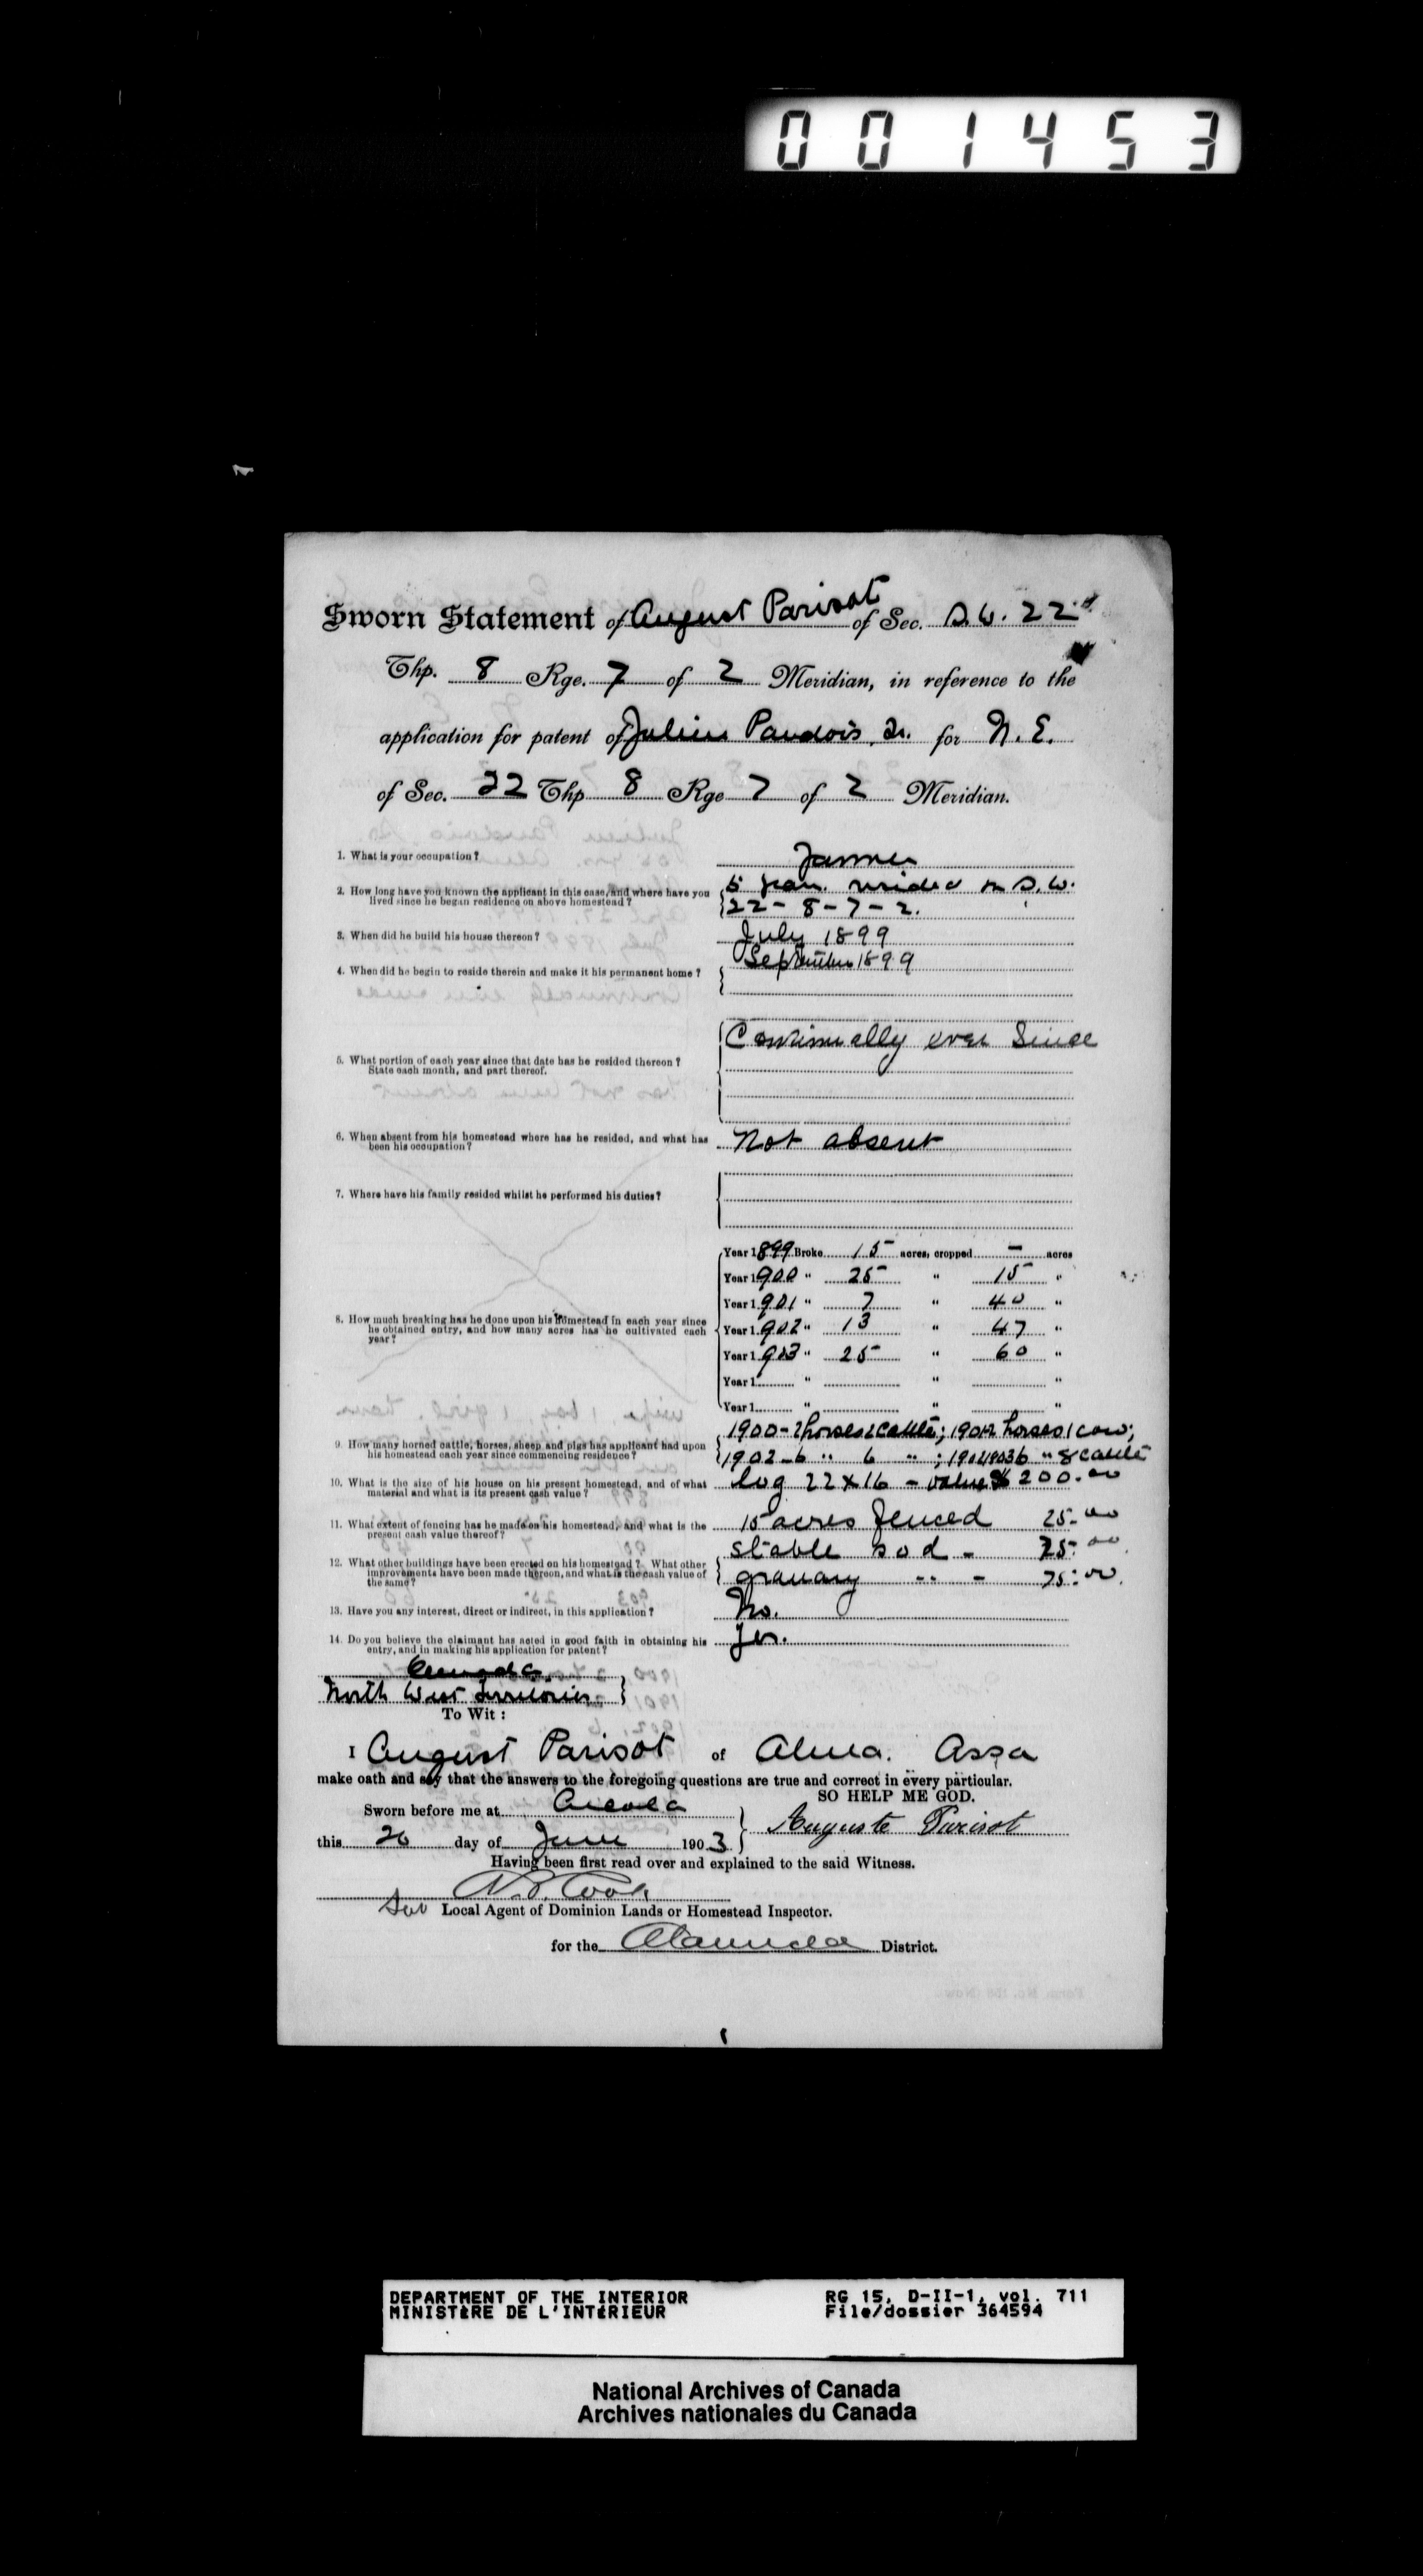 001453
Sworn Statement of August Parisot of Sec. S.W. 22
Thp. 8 Rge. 7 of 2 Meridian, in reference to the
application for patent of Julien Pandois, Sr. for N.E.
of Sec. 22 Thp 8 Rge 7 of 2 Meridian.
1. What is your occupation? Farmer
2. How long have you known the applicant in this case, and where have you 5 years. resided on S.W.
lived since he began residence on above homestead? 22-8-7-2.
3. When did he build his house thereon? July 1899
4. When did he begin to reside therein and make it his permanent home? September 1899
Continually ever Since
5. What portion of each year since that date has he resided thereon?
State each month, and part thereof.
6. When absent from his homestead where has he resided, and what has Not absent
been his occupation?
7. Where have his family resided whilst he performed his duties?
Year 1899 Broke 15 acres, cropped — acres
Year 1900 " 25 " 15 "
Year 1901 " 7 " 40 "
8. How much breaking has he done upon his homestead in each year since
he obtained entry, and how many acres has he cultivated each Year 1902 " 13 " 47 "
year?
Year 1903 " 25 " 60 "
Year 1 " " "
Year 1 " " "
1900-2 horses 2 cattle; 1901-2 horses 1 cow;
9. How many horned cattle, horses, sheep and pigs has applicant had upon
his homestead each year since commencing residence? 1902-6 " 6 " ; 1903 6 " 8 cattle
10. What is the size of his house on his present homestead, and of what log 22x16 - value $200.00
material and what is its present cash value?
11. What extent of fencing has he made on his homestead, and what is the 15 acres fenced 25.00
present cash value thereof?
stable sod - 75.00
12. What other buildings have been erected on his homestead? What other
improvements have been made thereon, and what is the cash value of granary " - 75.00.
the same?
13. Have you any interest, direct or indirect, in this application? No.
14. Do you believe the claimant has acted in good faith in obtaining his Yes.
entry, and in making his application for patent?
Canada
North West Territories
To Wit:
I August Parisot of Alma. Assa
make oath and say that the answers to the foregoing questions are true and correct in every particular.
SO HELP ME GOD.
Sworn before me at Arcola
Auguste Parisot
this 20 day of June 1903
Having been first read over and explained to the said Witness.
Cook
Sub Local Agent of Dominion Lands or Homestead Inspector.
for the Alameda District.
DEPARTMENT OF THE INTERIOR RG 15, D-II-1, vol. 711
MINISTÈRE DE L'INTÉRIEUR File/dossier 364594
National Archives of Canada
Archives nationales du Canada